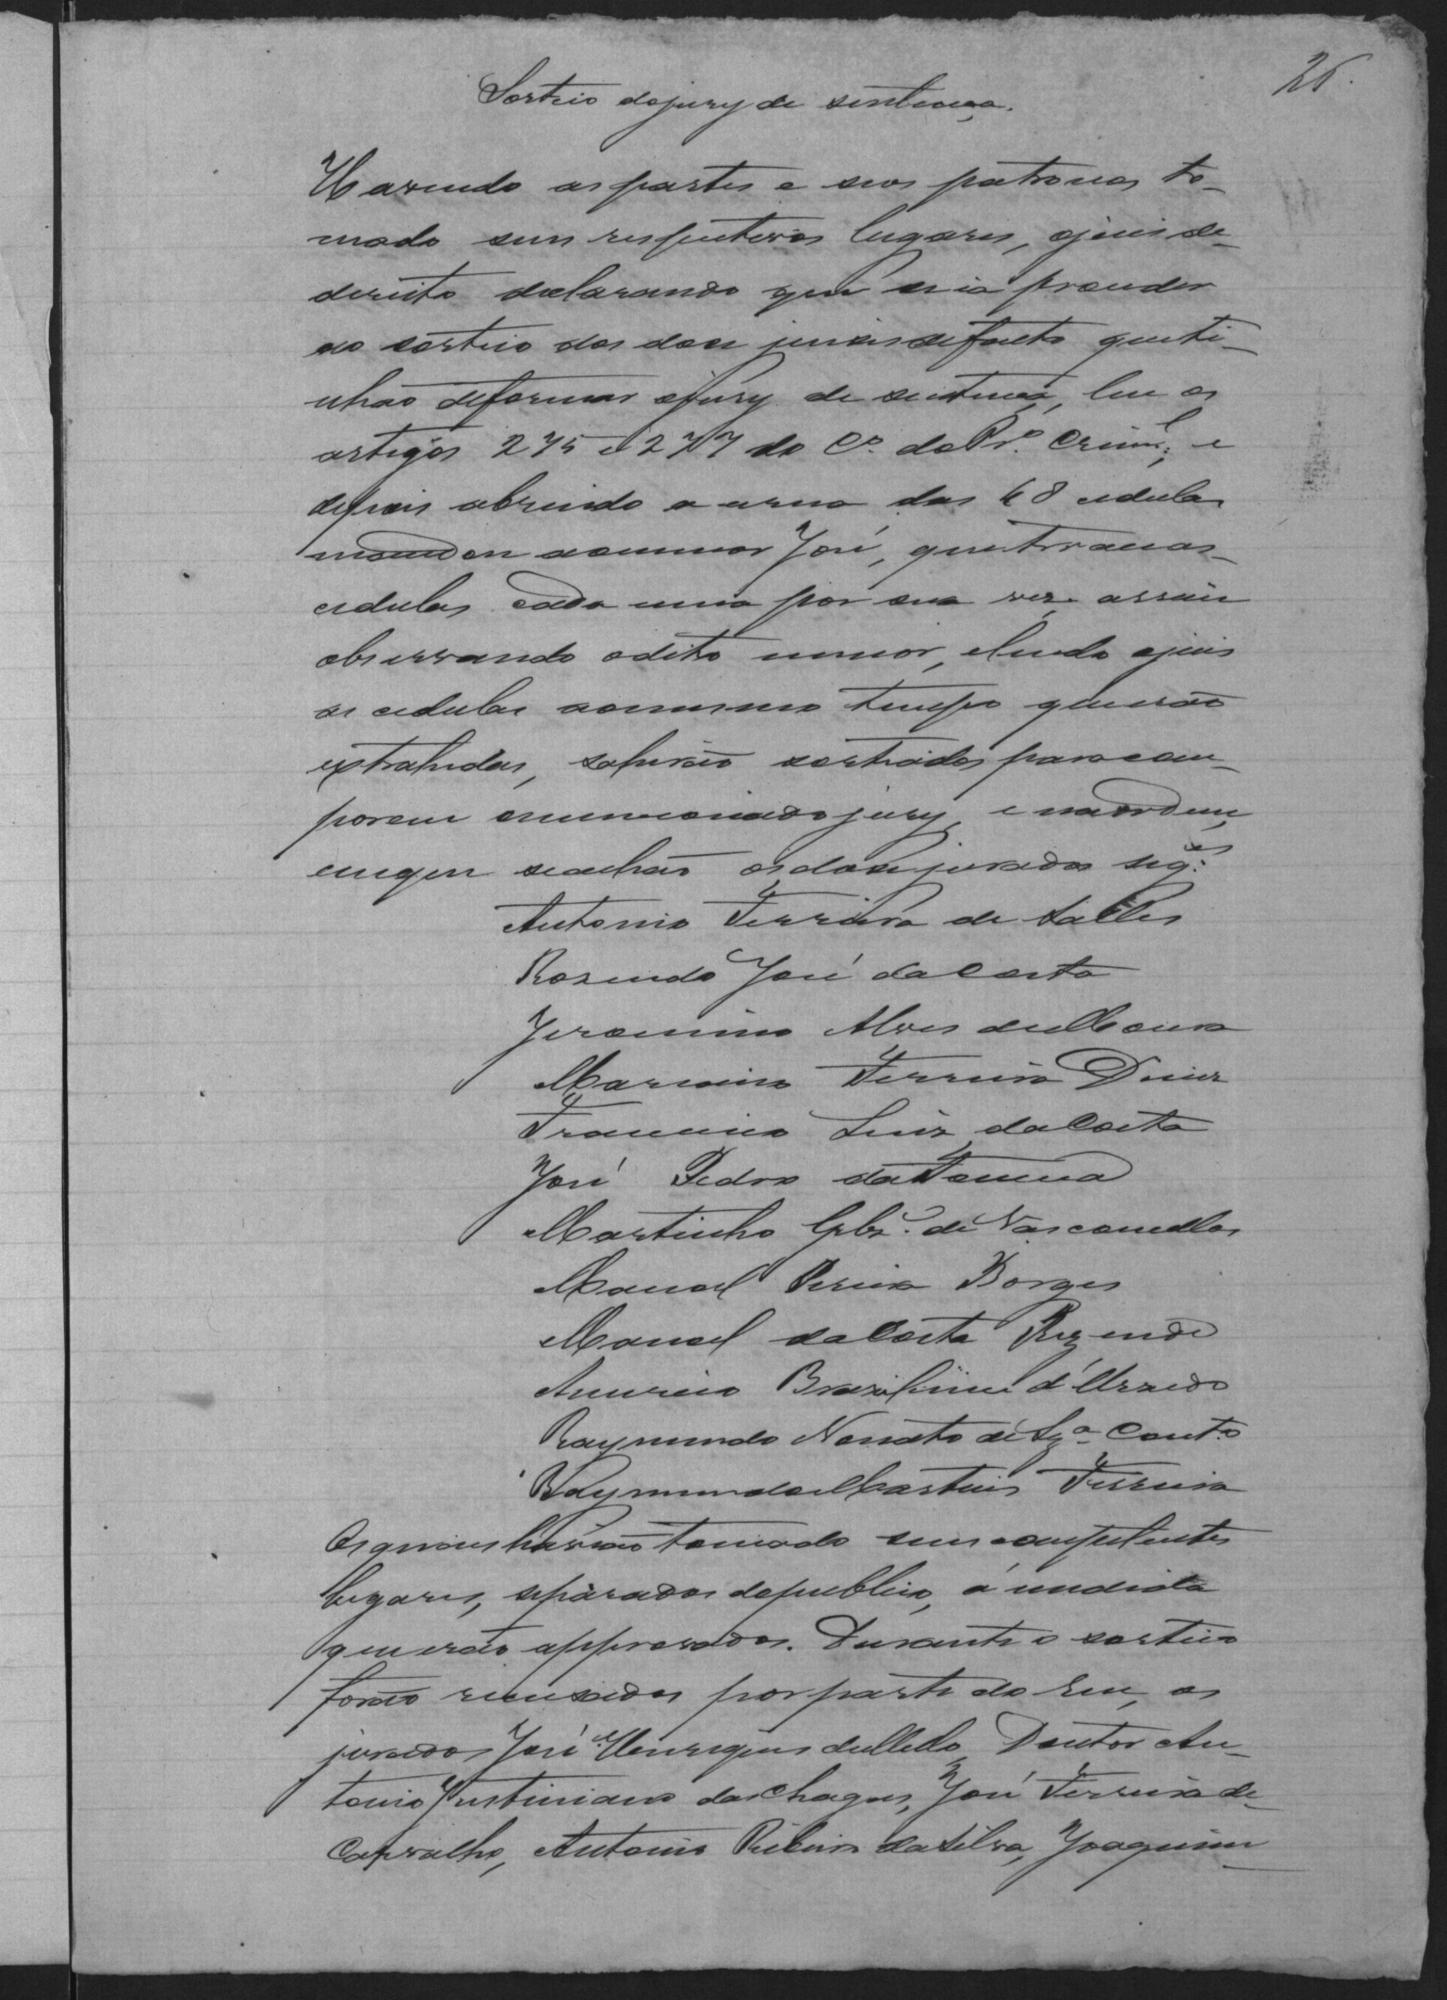 26.
Sorteio do jury de sentença.
Havendo as partes e seos patronos to-
mado seus respectivos lugares, o juis de
direito declarando que se ia proceder
ao sorteio dos dose juises de facto que ti-
nhão de formar o jury de sentença, leu os
artigos 275 e 277 do Co. do Pro. Criml., e
depois abrindo a urna das 48 cedulas
mandou ao menor José, que tirava as
cedulas cada uma por sua vez assim
observando o dito menor, e lendo o juis
as cedulas ao mesmo tempo que erão
extrahidas, sahirão sorteados para com-
porem o mencionado jury, e na ordem
em que se achão os dose jurados segtes:
Antonio Ferreira de Salles
Rosendo José da Costa
Jeronimo Alves de Moura
Marcino Ferreira Diniz
Francisco Luiz da Costa
José Pedro da Fonseca
Martinho Glz. de Vasconcellos
Manoel Pereira Borges
Manoel da Costa Rezende
Americo Brasiliense d'Urzedo
Raymundo Nonato de Sza Couto
Raymundo Martins Ferreira
Os quaes havião tomado seus competentes
lugares, separados do publico, á medida
que erão approvados. Durante o sorteio
forão recusados por parte do reu, os
jurados José Henriques de Mello, Doutor An-
tonio Justiniano das Chagas, José Ferreira de
Carvalho, Antonio Ribeiro da Silva, Joaquim